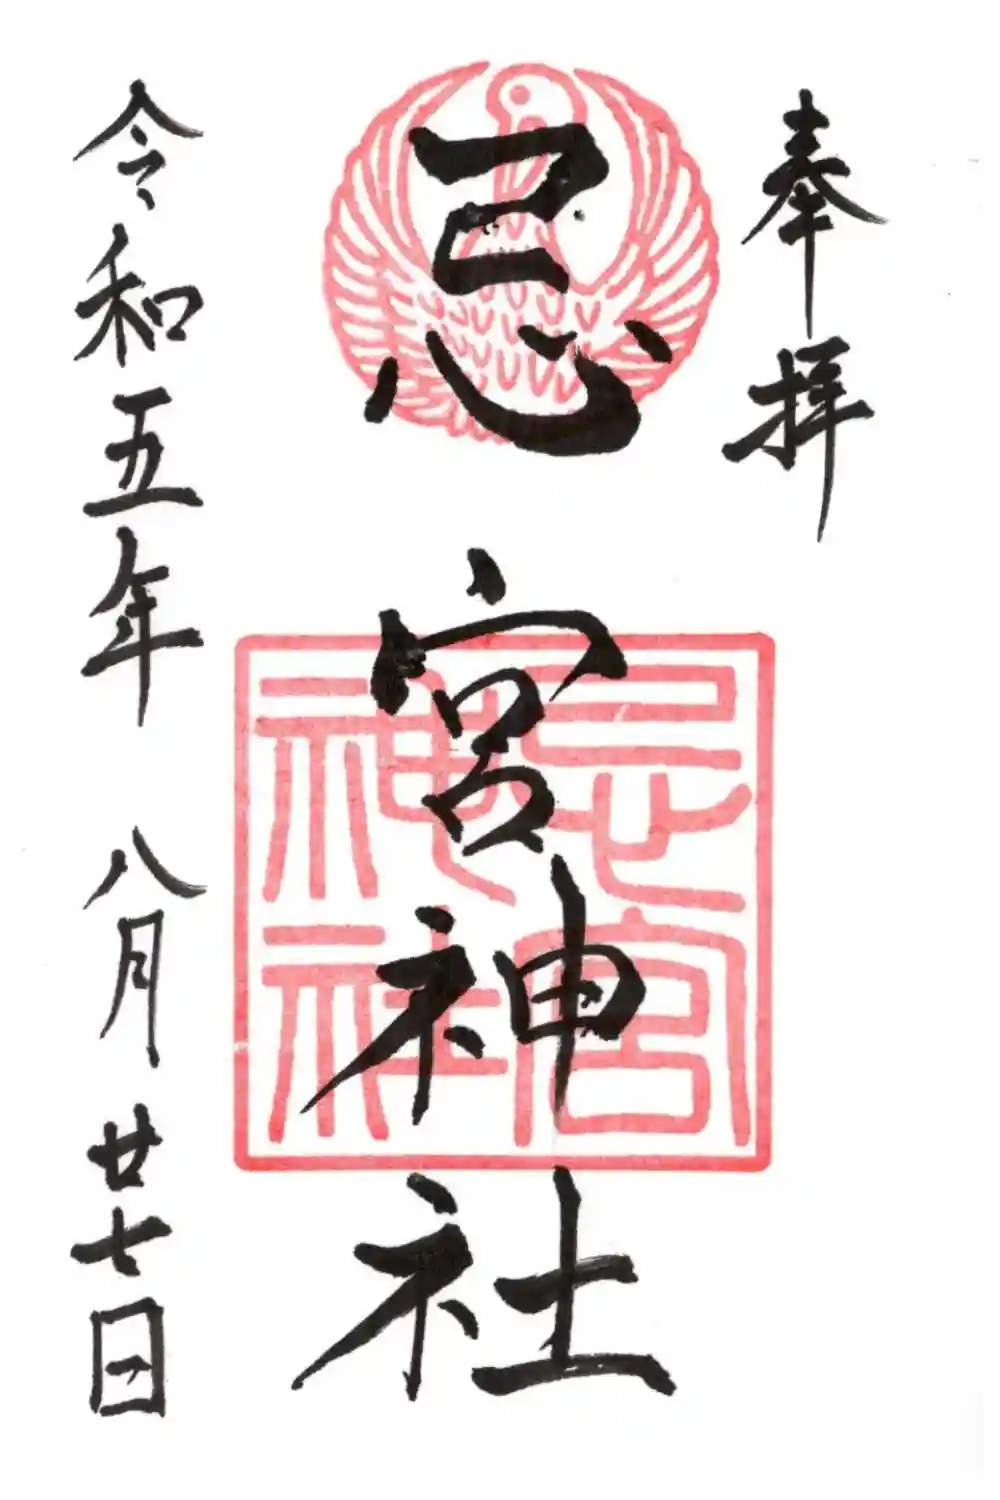 奉拝
忌宮神社
忌宮神社
令和五年 八月廿七日